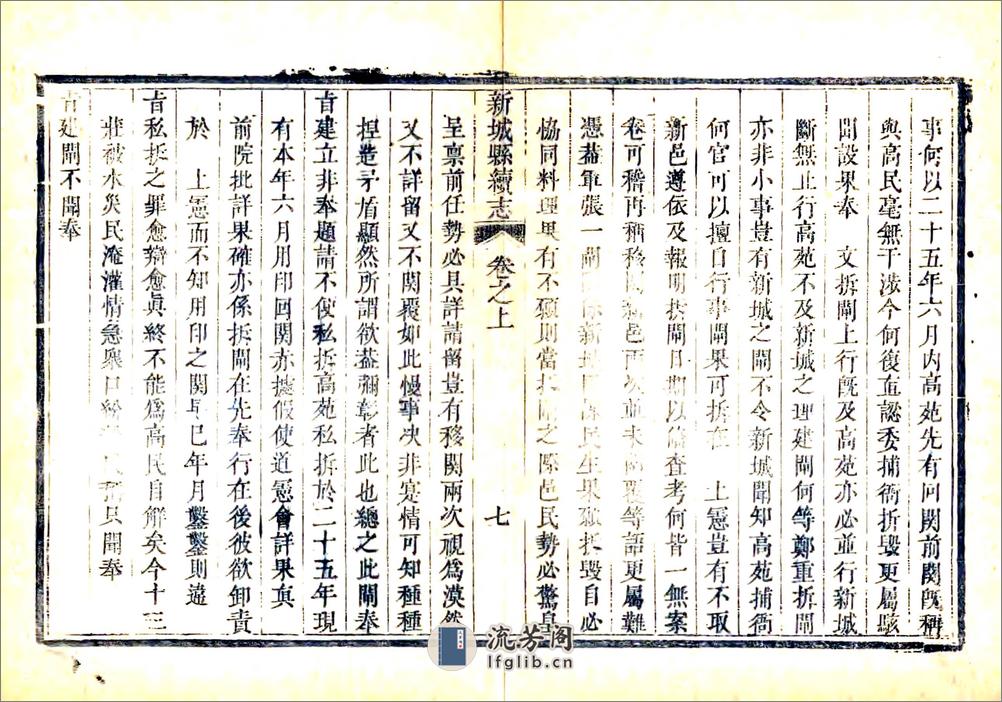 事何以二十五年六月內高苑先有回關前關旣稱
與高民毫無干涉今何復直認委捕衙折毀更屬駭
聞設果奉　文拆閘上行旣及高苑亦必並行新城
斷無止行高苑不及新城之理建閘何等鄭重拆閘
亦非小事豈有新城之閘不令新城聞知高苑捕衙
何官可以擅自行事閘果可拆在　上憲豈有不取
新邑遵依及報明拆閘日期以備查考何皆一無案
卷可稽再稱移關新邑兩次並未回覆等語更屬難
憑葢軍張一閘　係新　民生果強拆毀自必
恊同料理果有不願則當拆閘之際邑民勢必驚皇
新城縣續志　卷之上　七
呈稟前任勢必具詳請留豈有移關兩次視爲漠然
又不詳留又不關覆如此慢事决非寔情可知種種
揑造矛盾顯然所謂欲葢彌彰者此也總之此閘奉
旨建立非奉題請不便私拆高苑私拆於二十五年現
有本年六月用印回關亦據假使道憲會詳果真
前院批詳果確亦係拆閘在先奉行在後彼欲卸責
於　上憲而不知用印之關早已年月鑿鑿則違
旨私拆之罪愈辯愈眞終不能爲高民自解矣今十三
莊被水災民淹灌情急衆口　具聞奉
旨建閘不聞奉